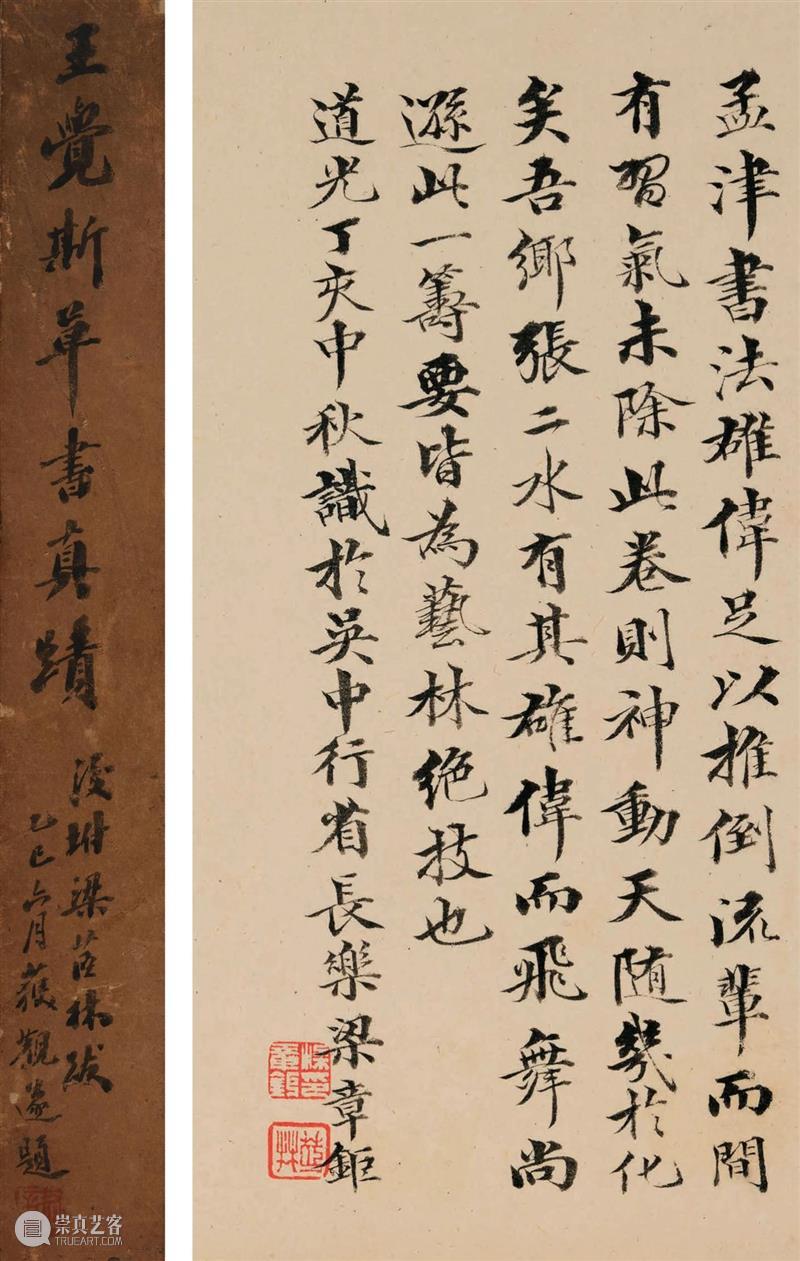 孟津書法雄偉足以推倒流輩而間
有習氣未除此卷則神動天随幾於化
矣吾鄉張二水有其雄偉而飛舞尚
遜此一籌要皆為藝林絕技也
道光丁亥中秋識於吳中行省長樂梁章鉅
王覺斯草書真蹟
後坿梁茝林跋
乙巳六月獲觀遂題
崇真艺客
TRUEART.COM